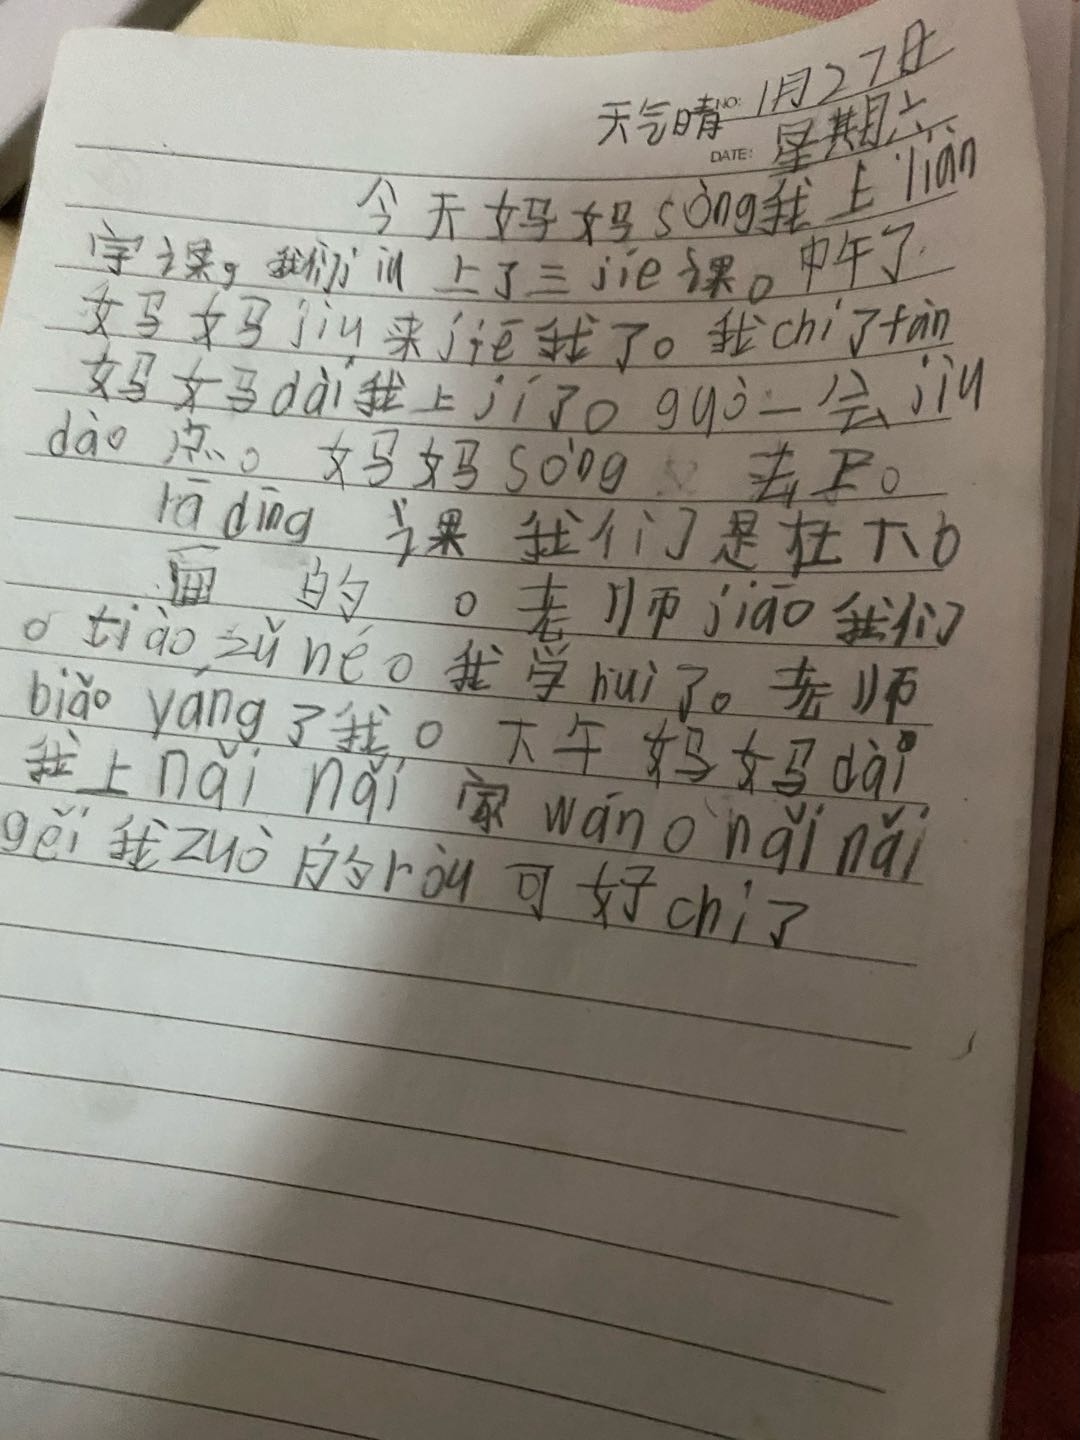 天气晴 NO: 1月27日
DATE: 星期六
今天妈妈sòng我上liàn
字课。我们jiù上了三jié课。中午了
妈妈jiù来jiē我了。我chī了fàn
妈妈dài我上jí了。guò一会jiù
dào点。妈妈sòng 去上。
lā dīng 课 我们是在大
面 的 。老师jiāo我们
。tiào zǔ hé。我学huì了。老师
biǎo yáng了我。下午妈妈dài
我上nǎi nǎi家wán。nǎi nǎi
gěi我zuò的ròu可好chī了